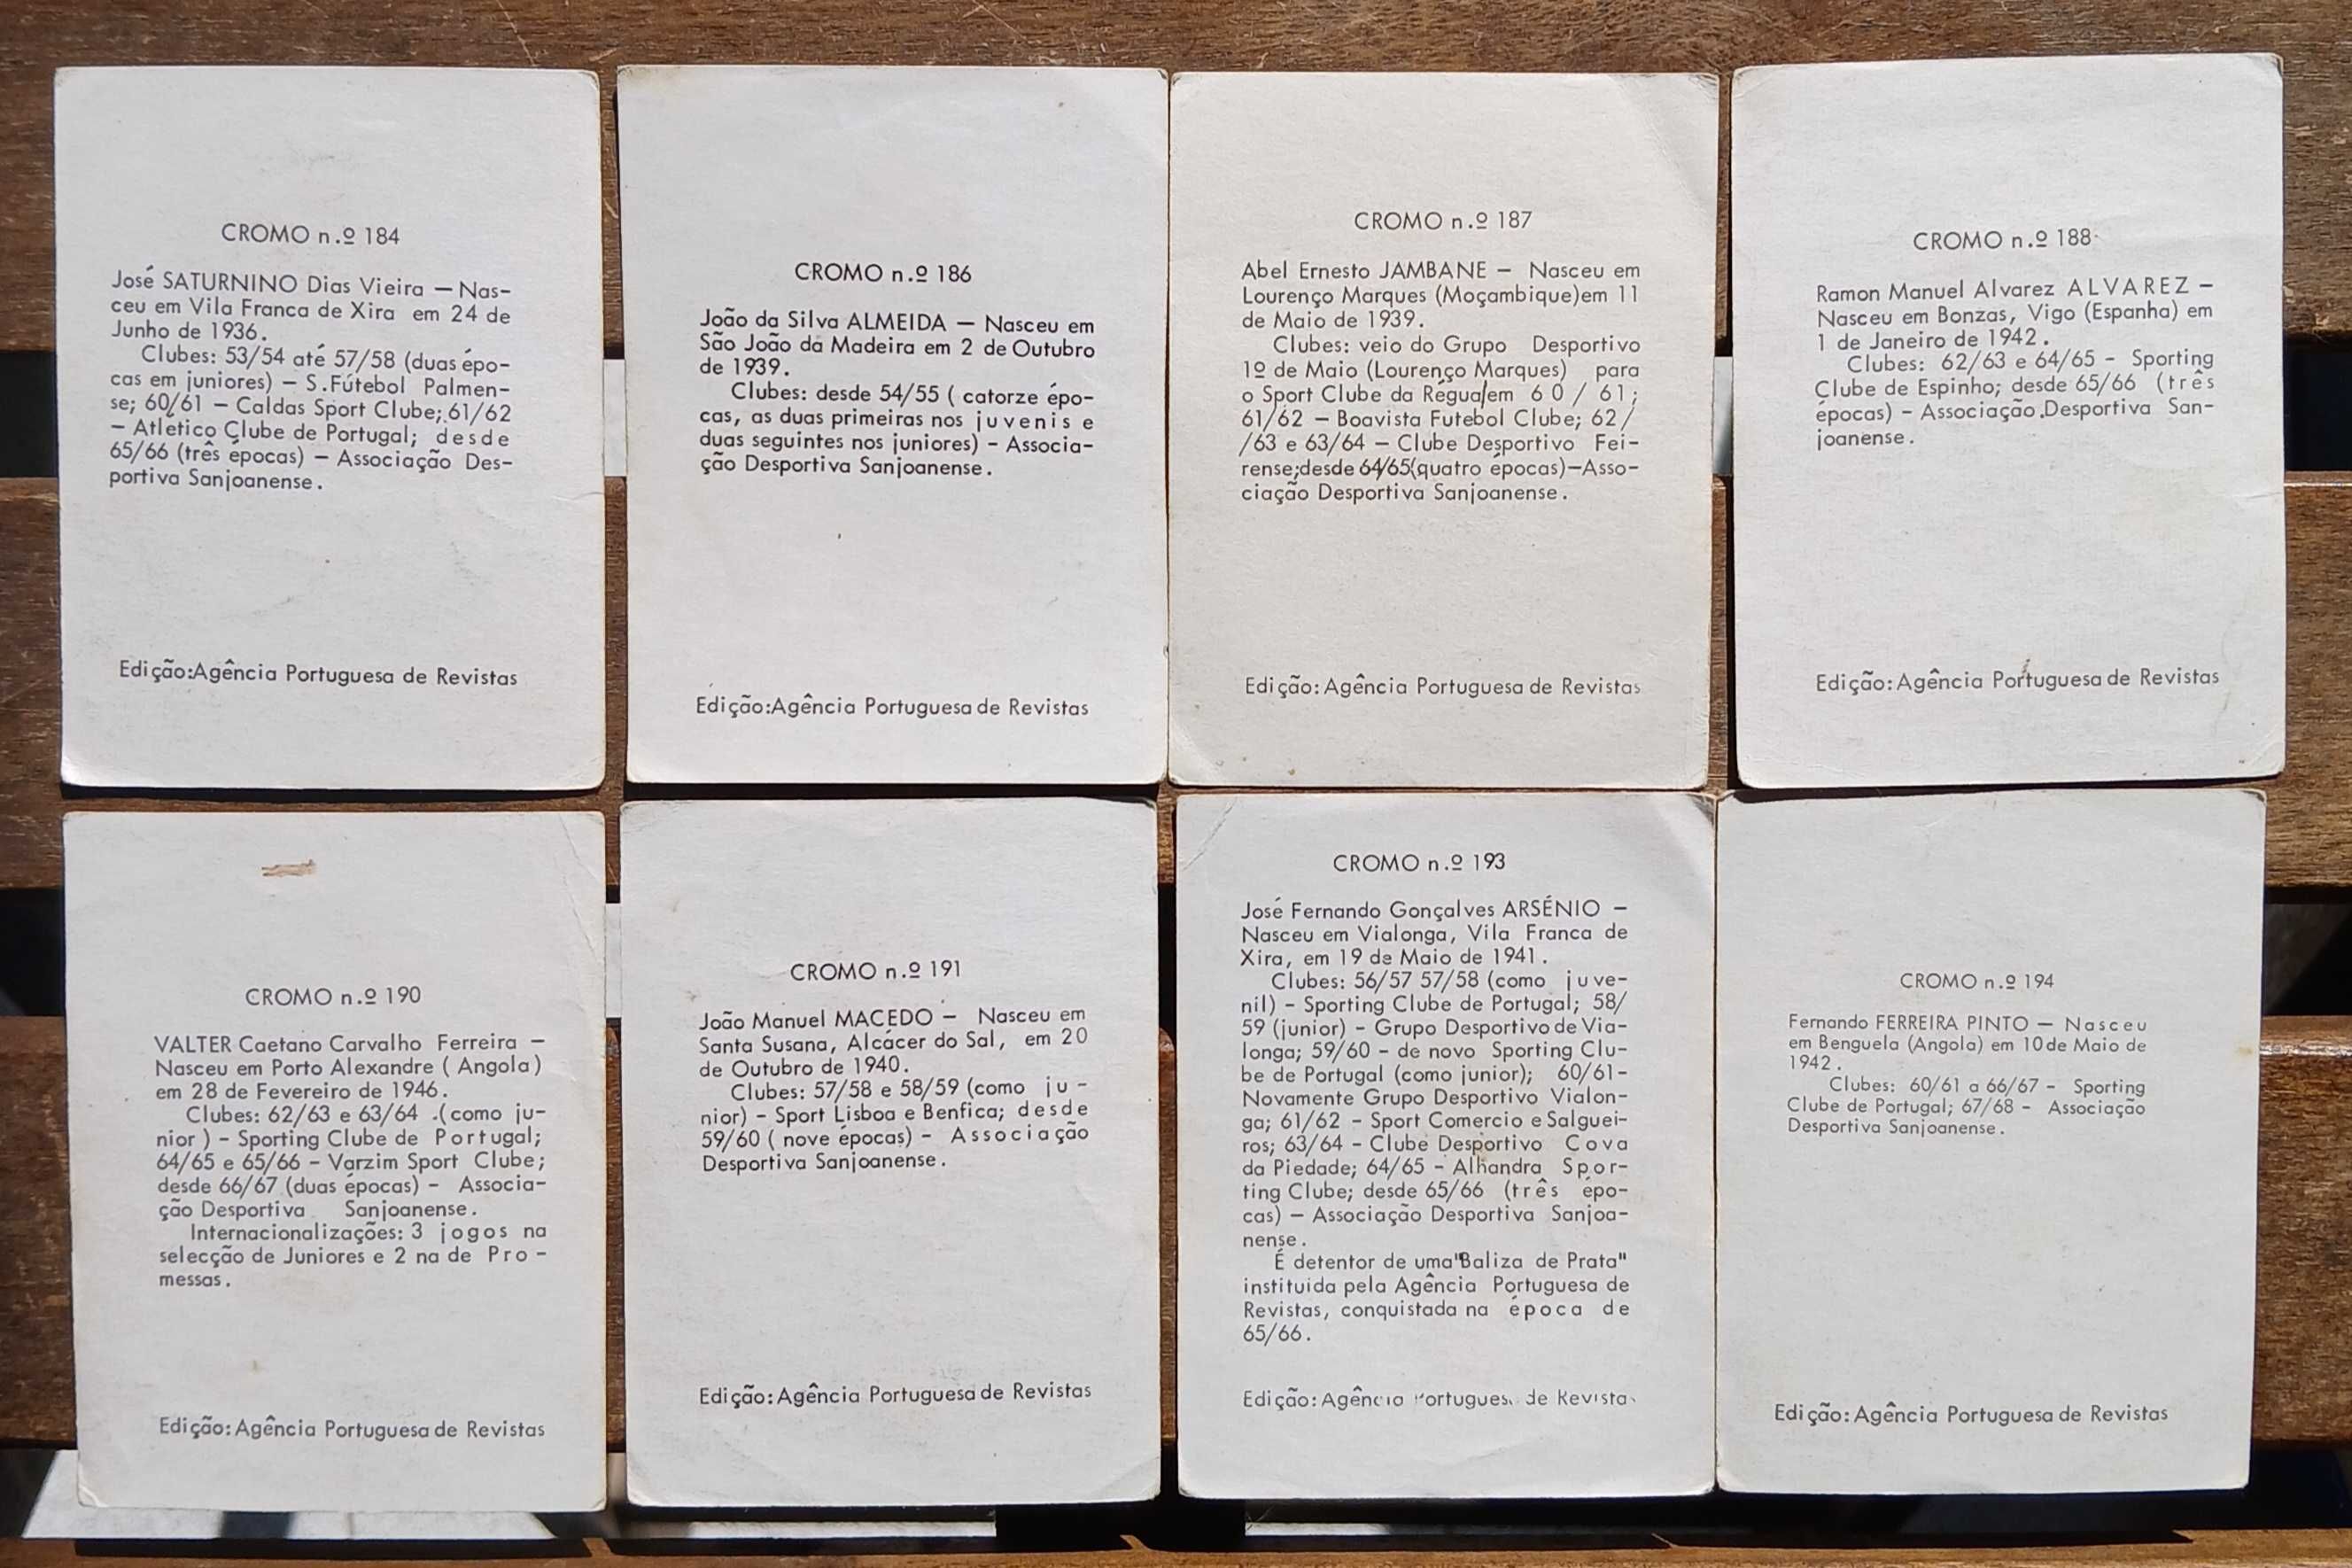 CROMO n.º 184
José SATURNINO Dias Vieira — Nas-
ceu em Vila Franca de Xira em 24 de
Junho de 1936.
Clubes: 53/54 até 57/58 (duas épo-
cas em juniores) — S.Fútebol Palmen-
se; 60/61 — Caldas Sport Clube; 61/62
— Atlético Clube de Portugal; desde
65/66 (três épocas) — Associação Des-
portiva Sanjoanense.
Edição:Agência Portuguesa de Revistas
CROMO n.º 186
João da Silva ALMEIDA — Nasceu em
São João da Madeira em 2 de Outubro
de 1939.
Clubes: desde 54/55 ( catorze épo-
cas, as duas primeiras nos juvenis e
duas seguintes nos juniores) - Associa-
ção Desportiva Sanjoanense.
Edição:Agência Portuguesa de Revistas
CROMO n.º 187
Abel Ernesto JAMBANE — Nasceu em
Lourenço Marques (Moçambique)em 11
de Maio de 1939.
Clubes: veio do Grupo Desportivo
1º de Maio (Lourenço Marques) para
o Sport Clube da Régua/em 60/61;
61/62 — Boavista Futebol Clube; 62/
/63 e 63/64 — Clube Desportivo Fei-
rense;desde 64/65(quatro épocas)—Asso-
ciação Desportiva Sanjoanense.
Edição: Agência Portuguesa de Revistas
CROMO n.º 188
Ramon Manuel Alvarez ALVAREZ —
Nasceu em Bonzas, Vigo (Espanha) em
1 de Janeiro de 1942.
Clubes: 62/63 e 64/65 - Sporting
Clube de Espinho; desde 65/66 (três
épocas) - Associação Desportiva San-
joanense.
Edição: Agência Portuguesa de Revistas
CROMO n.º 190
VALTER Caetano Carvalho Ferreira —
Nasceu em Porto Alexandre ( Angola)
em 28 de Fevereiro de 1946.
Clubes: 62/63 e 63/64 .(como ju-
nior ) - Sporting Clube de Portugal;
64/65 e 65/66 - Varzim Sport Clube;
desde 66/67 (duas épocas) - Associa-
ção Desportiva Sanjoanense.
Internacionalizações: 3 jogos na
selecção de Juniores e 2 na de Pro-
messas.
Edição: Agência Portuguesa de Revistas
CROMO n.º 191
João Manuel MACEDO — Nasceu em
Santa Susana, Alcácer do Sal, em 20
de Outubro de 1940.
Clubes: 57/58 e 58/59 (como ju-
nior) - Sport Lisboa e Benfica; desde
59/60 ( nove épocas) - Associação
Desportiva Sanjoanense.
Edição: Agência Portuguesa de Revistas
CROMO n.º 193
José Fernando Gonçalves ARSÉNIO —
Nasceu em Vialonga, Vila Franca de
Xira, em 19 de Maio de 1941.
Clubes: 56/57 57/58 (como juve-
nil) - Sporting Clube de Portugal; 58/
59 (junior) - Grupo Desportivo de Via-
longa; 59/60 - de novo Sporting Clu-
be de Portugal (como junior); 60/61-
Novamente Grupo Desportivo Vialon-
ga; 61/62 - Sport Comercio e Salguei-
ros; 63/64 - Clube Desportivo Cova
da Piedade; 64/65 - Alhandra Spor-
ting Clube; desde 65/66 (três épo-
cas) — Associação Desportiva Sanjoa-
nense.
É detentor de uma"Baliza de Prata"
instituida pela Agência Portuguesa de
Revistas, conquistada na época de
65/66.
Edição: Agência Portuguesa de Revistas
CROMO n.º 194
Fernando FERREIRA PINTO — Nasceu
em Benguela (Angola) em 10 de Maio de
1942.
Clubes: 60/61 a 66/67 - Sporting
Clube de Portugal; 67/68 - Associaçao
Desportiva Sanjoanense.
Edição: Agência Portuguesa de Revistas